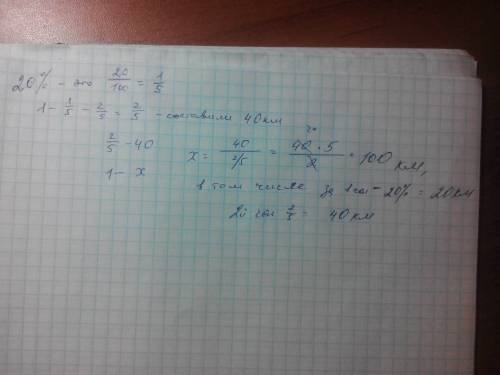 20% - это 20/100 = 1/5
1 - 1/5 - 2/5 = 2/5 - составили 40 км
2/5 - 40
1 - x
x = 40/(2/5) = 40 · 5/2 = 100 км, 20
в том числе за 1 час - 20% = 20 км
2й час 2/5 = 40 км